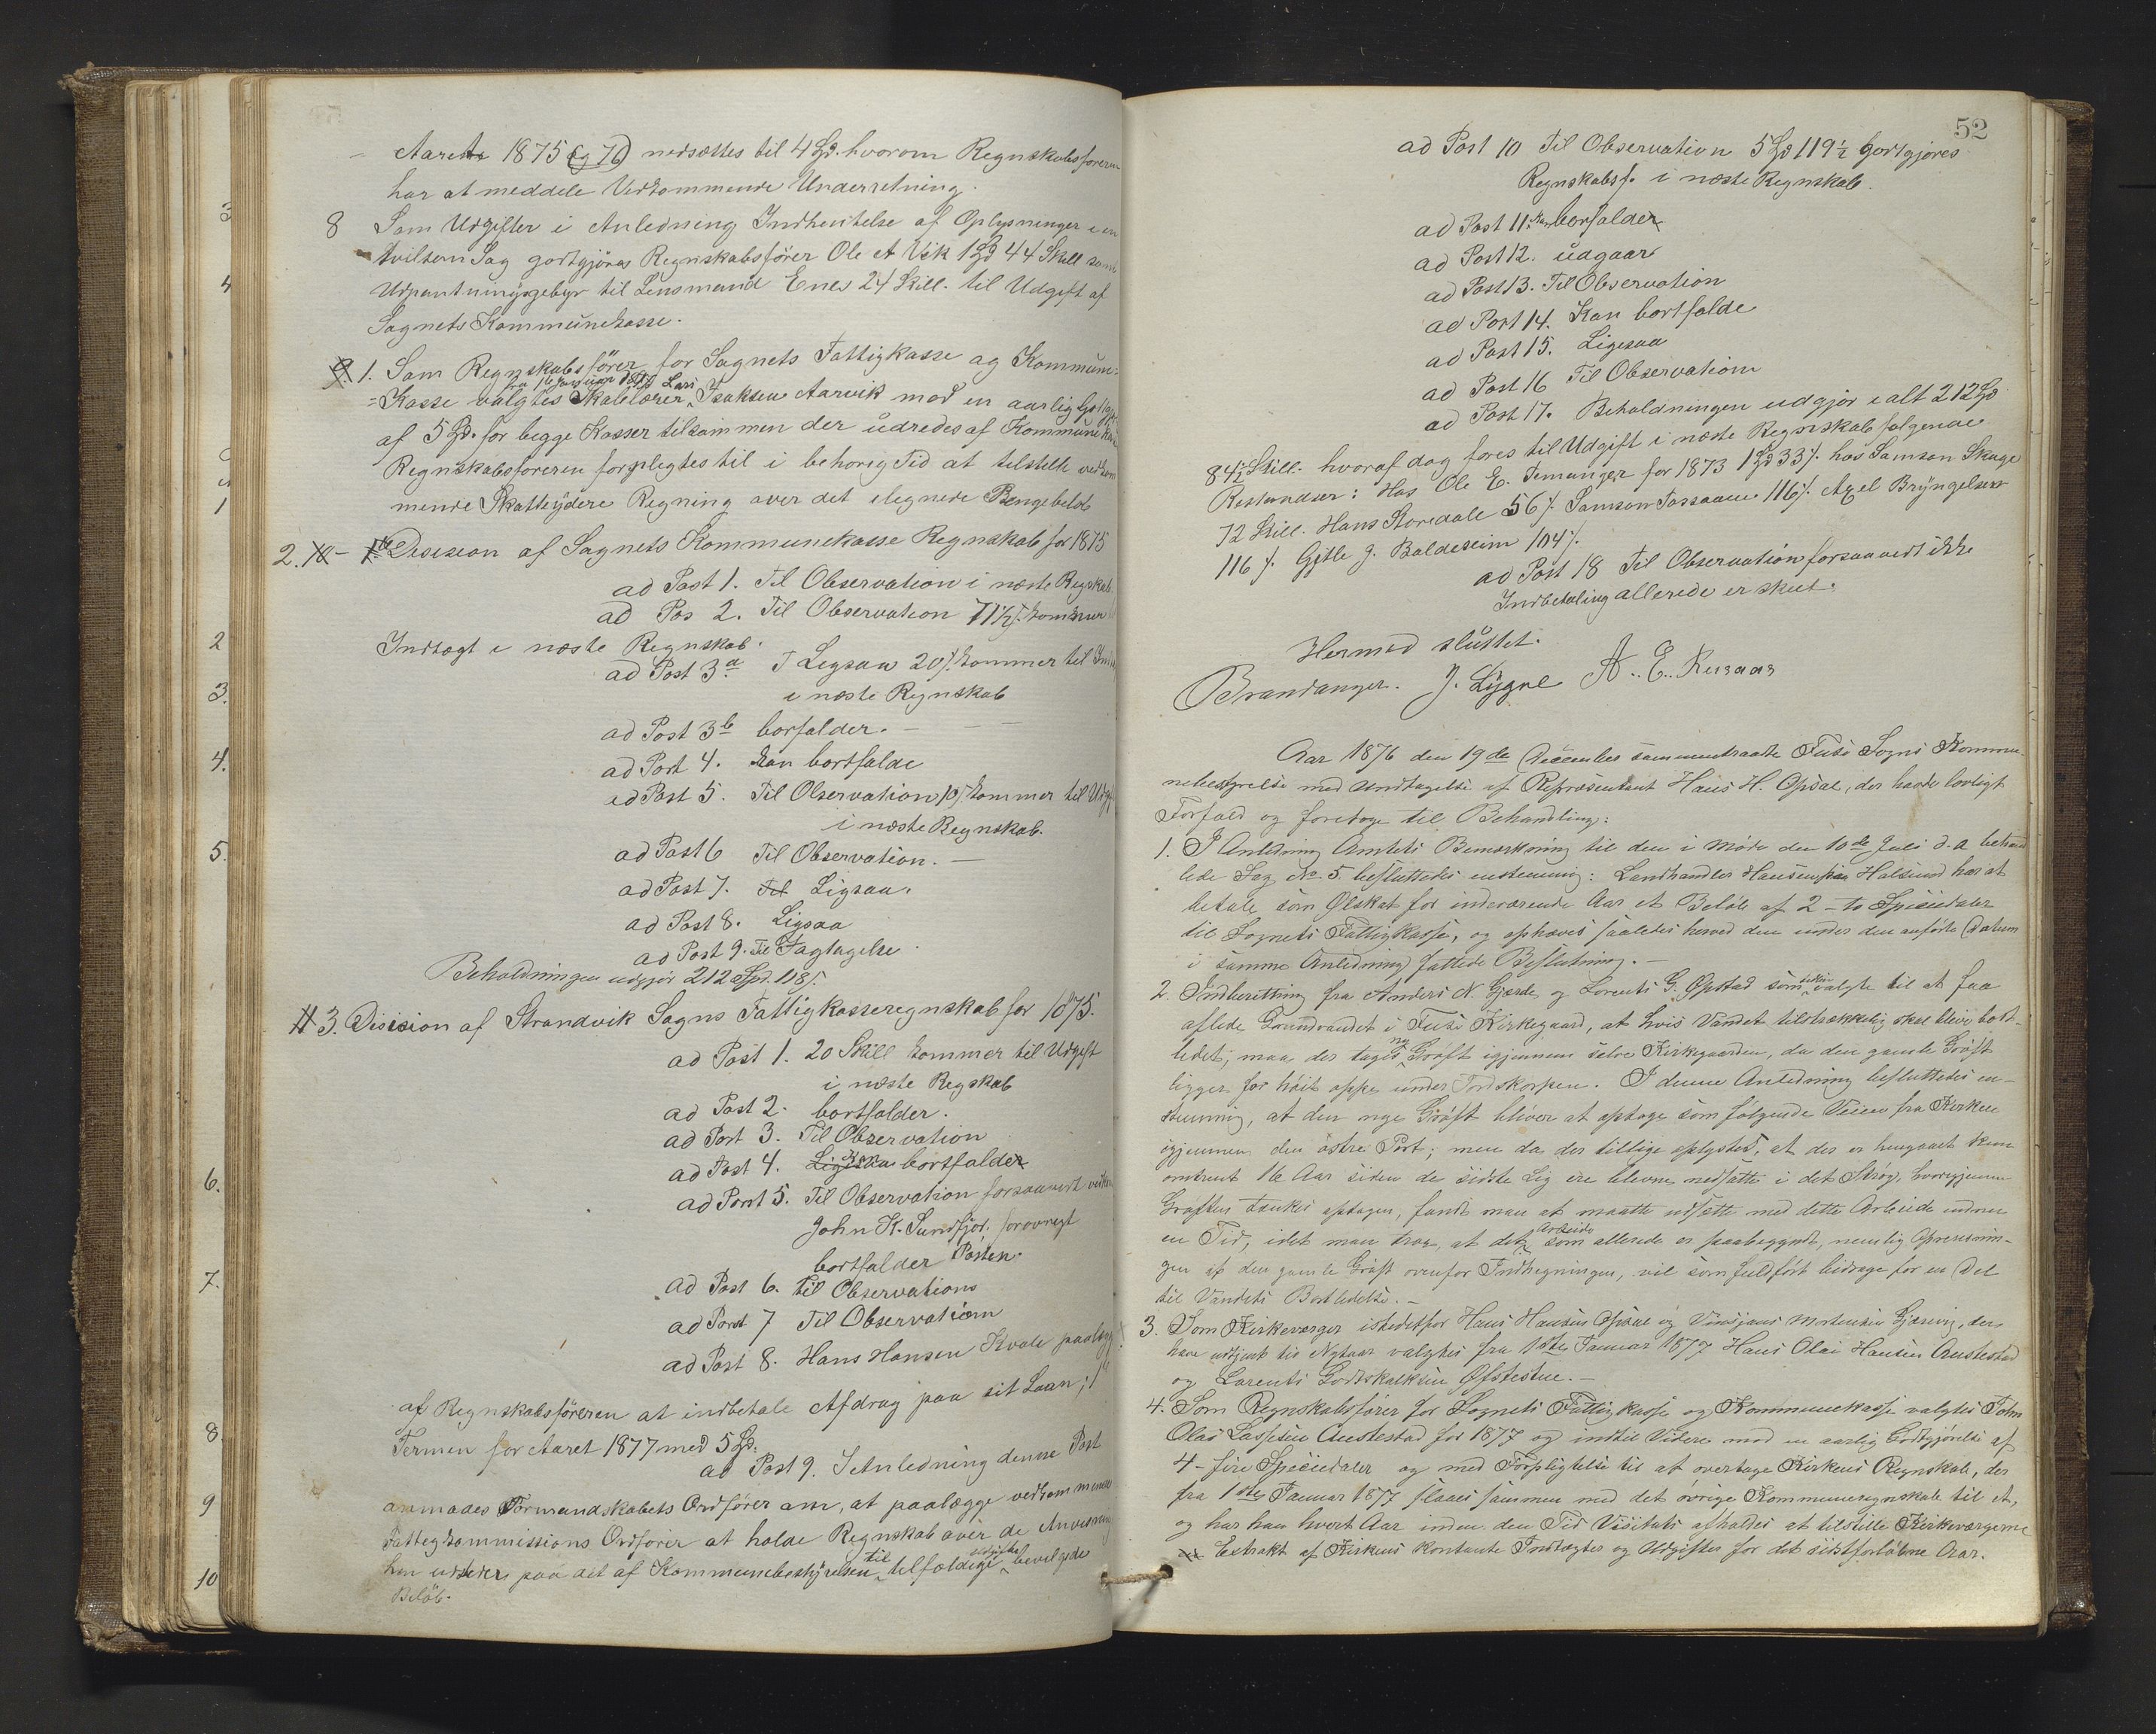 Aarete 1875 (og 76) nedsættes til 4 Spd. hvorom Regnskabsføreren
har at meddele Vedkommende Underretning.
8 Som Udgifter i Anledning Indhentelse af Oplysninger i en
tvilsom Sag godtgjøres Regnskabsfører Ole A Vik 1 Spd 44 Skill samt
Udpantningsgebyr til Lensmand Enes 24 Skill. til Udgift af
Sognets Kommunekasse.
1. Som Regnskabsfører for Sognets Fattigkasse og Kommune=
fra 1 Januar 1877 Lars
=Kasse valgtes Skolelærer Isaksen Aarvik mod en aarlig Godtgj
af 5 Spd. for begge Kasser tilsammen der udredes af Kommunekas
Regnskabsføreren forpligtes til i behørig Tid at tilstille vedkom
mende Skatteydere Regning over det ilegnede Pengebeløb
2. Desision af Sognets Kommunekasse Regnskab for 1875
ad Post 1. Til Observation i næste Regskab
ad Pos 2. Til Observation 71½ ſ. kommer til
Indtægt i næste Regnskab.
ad Post 3a Ligsaa 20 ſ. kommer til Ind
i næste Regnskab
ad Post 3b borfalder. —
ad Post 4. kan bortfalde
ad Post 5. Til Observation 10 ſ. kommer til Udg
i næste Regnskab.
ad Post 6 Til Observation. —
ad Post 7. Til Ligsaa.
ad Post 8. Ligsaa
ad Post 9. Til Iagtagelse.
Beholdningen udgjør 212 Spd. 118 ſ.
3. Disision af Strandvik Sogns Fattigkasseregnskab for 1875.
ad Post 1. 20 Skill kommer til Udgift
i næste Regskab
ad Post 2. bortfalder.
ad Post 3. Til Observation
ad Post 4. Ligesaa kan bortfalder
ad Post 5. Til Observation forsaavidt vedkom
John K. Sundfjor, forøvrigt
bortfalder Posten.
ad Post 6. til Observations
ad Post 7 Til Observation
ad Post 8. Hans Hansen Kvale paalægg
af Regnskabsføreren at indbetale Afdrag paa sit Laan; 1ste
Termin for Aaret 1877 med 5 Spd.
ad Post 9. I Anledning denne Post
anmodes Formandskabets Ordfører om, at paalægge vedkommende
Fattigkommissions Ordfører at holde Regnskab over de Anvisning
han udsteder paa det af Kommunebestyrelsen til tilfældige udgifter bevilgede
Beløb.
52
ad Post 10 Til Observation 5 Spd 119½ godtgjøres
Regnskabsf. i næste Regnskab.
ad Post 11. kan borfalder
ad Post 12. udgaar
ad Post 13. Til Observation
ad Post 14. Kan bortfalde
ad Post 15. Ligesaa
ad Post 16 Til Observation
ad Post 17. Beholdningen udgjør i alt 212 Spd
84½ Skill. hvoraf dog føres til Udgift i næste Regnskab følgende
Restandser: Hos Ole E. Temanger for 1873 1 Spd 33 ſ. hos Samson Skage
72 Skill. Hans Koredale 56 ſ. Samson Fossaaen 116 ſ. Axel Bryngelsen
116 ſ. Gjtle J. Baldeseim 104 ſ.
ad Post 18 Til Observation forsaavidt ikke
Indbetaling allerede er skeet.
Hermed sluttet.
Brandanger. J. Lygre A. E. Revaas
Aar 1876 den 19de December sammentraadte Fuse Sogns Kommu
nebestyrelse med Undtagelse af Repræsentant Hans H. Opsal, der havde lovligt
Forfald og foretoges til Behandling:
1. I Anledning Amtets Bemærkning til den i Møde den 10de Juli d. a behand
lede Sag No. 5 besluttedes enstemmig: Landhandler Hansen paa Halsund har at
betale som Ølskat for indeværende Aar et Beløb af 2 - to Speciedaler
til Sognets Fattigkasse, og ophæves saaledes herved den under den anførte Datum
i samme Anledning fattede Beslutning. —
2. Indberetning fra Anders N. Gjerde og Lorents G. Øpstad som valgte til at faa
aflede Grundvandet i Fuse Kirkegaard, at hvis Vandet tilstrækkelig skal blive bort-
ledet, maa der tages ny Grøft igjennem selve Kirkegaarden, da den gamle Grøft
ligger for høit oppe under Jordskorpen. I denne Anledning besluttedes en-
stemmig, at den nye Grøft bliver at optage som følgende Veien fra Kirken
igjennem den østre Port; men da der tillige oplystes, at der er hengaaet kun
omtrent 16 Aar siden de sidste Lig ere blevne nedsatte i det Strøg, hvorigjennem
Grøften tænkes optagen, fandt man at maatte udsætte med dette Arbeide endnu
en Tid, idet man tror, at det Arbeide som allerede er paabegyndt, nemlig Oprensnin-
gen af den gamle Grøft ovenfor Indhegningen, vil som fuldført bidrage for en Del
til Vandets Bortledelse. —
3. Som Kirkeværger istedetfor Hans Hansen Opsal og Vinsjans Mortensen Gjerevig, der
have udtjent til Nytaar valgtes fra 1ste Januar 1877 Hans Olai Hansen Austestad
og Lorents Godtskalksen Øfstestue. —
4. Som Regnskabsfører for Sognets Fattigkasse og Kommunekasse valgtes John
Olai Lassesen Austestad for 1877 og indtil Videre mod en aarlig Godtgjørelse af
4 - fire Speciedaler og med Forpligtelse til at overtage Kirkens Regnskab, der
fra 1ste Januar 1877 slaaes sammen med det øvrige Kommuneregnskab til et,
og har han hvert Aar inden den Tid Visitats afholdes at tilstille Kirkeværgerne
Extrakt af Kirkens kontante Indtægter og Udgifter for det sidstforløbne Aar.